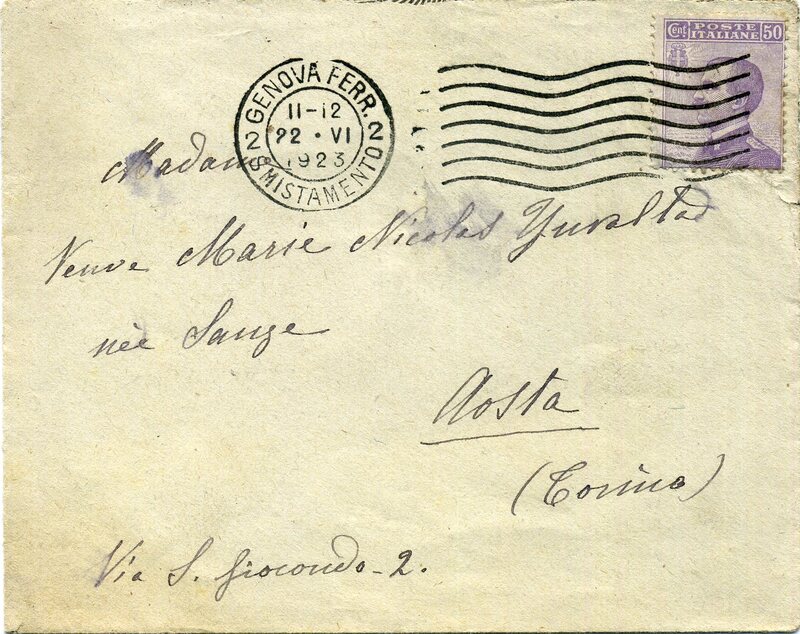 Cent. POSTE ITALIANE 50
GENOVA FERR.
11-12
2 22 · VI 2
1923
SMISTAMENTO
Madam
Veuve Marie Nicolas
née
Aosta
(Torino)
Via S. Giocondo-2.